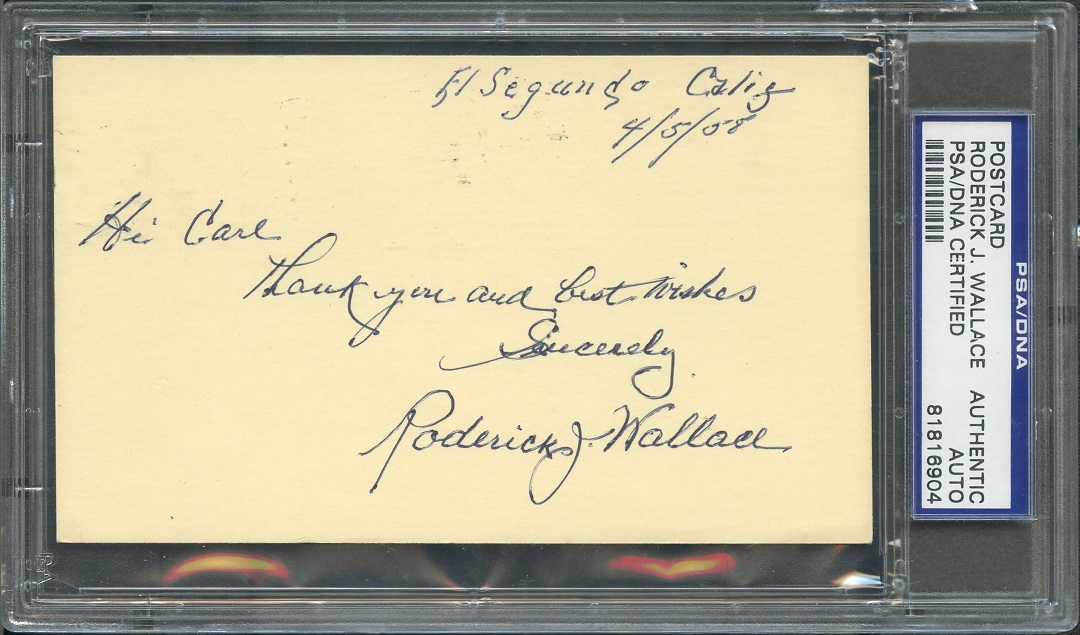 El Segundo Calif
4/5/58
Hi Carl
Thank you and best wishes
Sincerely
Roderick J. Wallace
PSA/DNA
POSTCARD
RODERICK J. WALLACE AUTHENTIC
PSA/DNA CERTIFIED AUTO
81816904